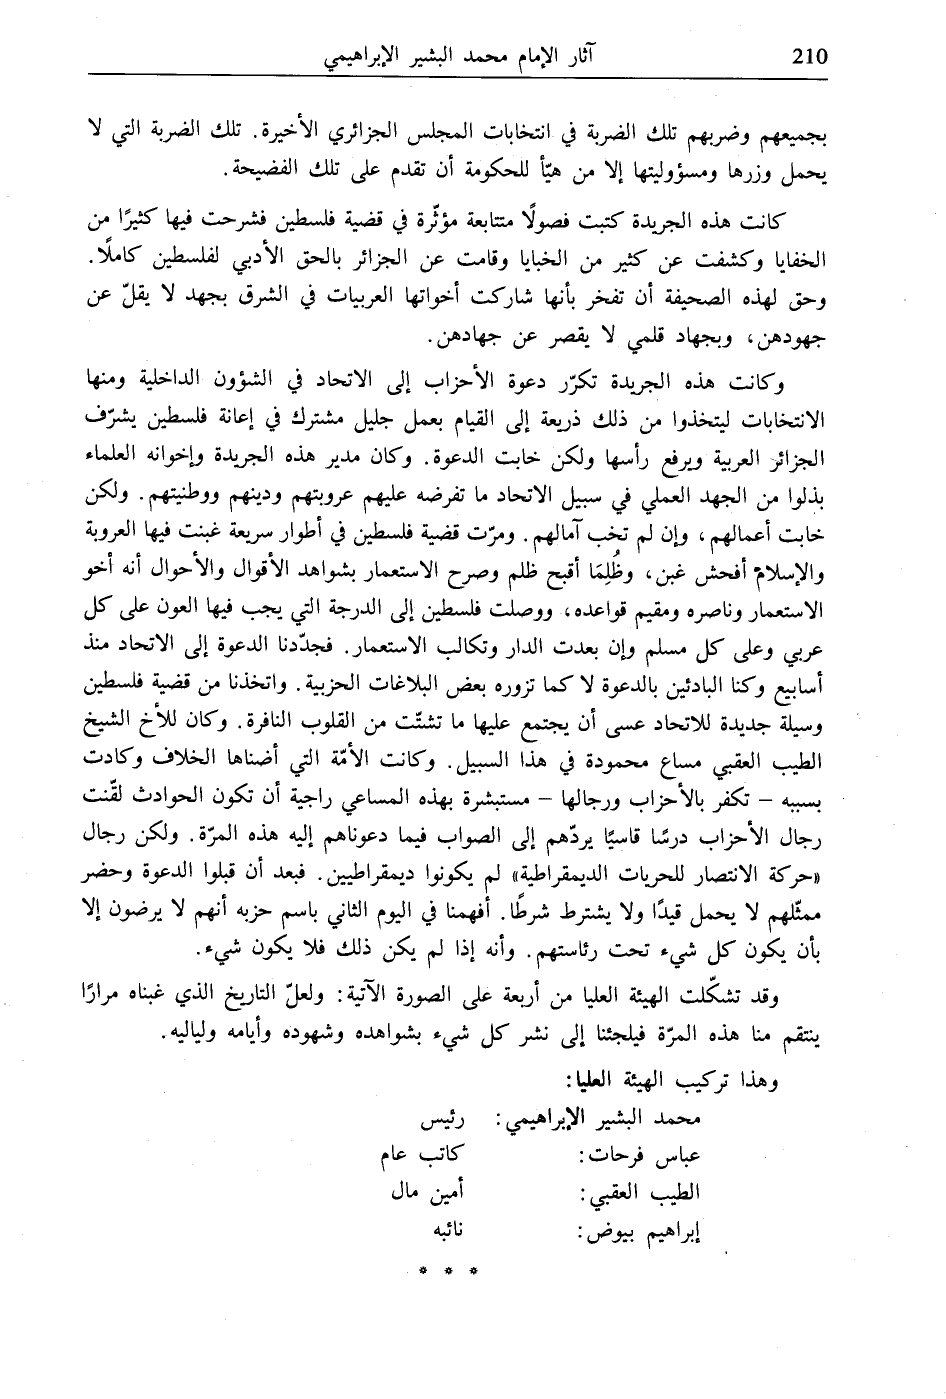 210
آثار الإمام محمد البشير الإبراهيمي
بجميعهم وضربهم تلك الضربة في انتخابات المجلس الجزائري الأخيرة. تلك الضربة التي لا
يحمل وزرها ومسؤوليتها إلا من هيّأ للحكومة أن تقدم على تلك الفضيحة.
كانت هذه الجريدة كتبت فصولًا متتابعة مؤثّرة في قضية فلسطين فشرحت فيها كثيرًا من
الخفايا وكشفت عن كثير من الخبايا وقامت عن الجزائر بالحق الأدبي لفلسطين كاملًا.
وحق لهذه الصحيفة أن تفخر بأنها شاركت أخواتها العربيات في الشرق بجهد لا يقلّ عن
جهودهن، وبجهاد قلمي لا يقصر عن جهادهن.
وكانت هذه الجريدة تكرّر دعوة الأحزاب إلى الاتحاد في الشؤون الداخلية ومنها
الانتخابات ليتخذوا من ذلك ذريعة إلى القيام بعمل جليل مشترك في إعانة فلسطين يشرّف
الجزائر العربية ويرفع رأسها ولكن خابت الدعوة. وكان مدير هذه الجريدة وإخوانه العلماء
بذلوا من الجهد العملي في سبيل الاتحاد ما تفرضه عليهم عروبتهم ودينهم ووطنيتهم. ولكن
خابت أعمالهم، وإن لم تخب آمالهم. ومرّت قضية فلسطين في أطوار سريعة غبنت فيها العروبة
والإسلام أفحش غبن، وظُلِمَا أقبح ظلم وصرح الاستعمار بشواهد الأقوال والأحوال أنه أخو
الاستعمار وناصره ومقيم قواعده، ووصلت فلسطين إلى الدرجة التي يجب فيها العون على كل
عربي وعلى كل مسلم وإن بعدت الدار وتكالب الاستعمار. فجدّدنا الدعوة إلى الاتحاد منذ
أسابيع وكنا البادئين بالدعوة لا كما تزوره بعض البلاغات الحزبية. واتخذنا من قضية فلسطين
وسيلة جديدة للاتحاد عسى أن يجتمع عليها ما تشتّت من القلوب النافرة. وكان للأخ الشيخ
الطيب العقبي مساع محمودة في هذا السبيل. وكانت الأمّة التي أضناها الخلاف وكادت
بسببه – تكفر بالأحزاب ورجالها – مستبشرة بهذه المساعي راجية أن تكون الحوادث لقّنت
رجال الأحزاب درسًا قاسيًا يردّهم إلى الصواب فيما دعوناهم إليه هذه المرّة. ولكن رجال
«حركة الانتصار للحريات الديمقراطية» لم يكونوا ديمقراطيين. فبعد أن قبلوا الدعوة وحضر
ممثّلهم لا يحمل قيدًا ولا يشترط شرطًا. أفهمنا في اليوم الثاني باسم حزبه أنهم لا يرضون إلا
بأن يكون كل شيء تحت رئاستهم. وأنه إذا لم يكن ذلك فلا يكون شيء.
وقد تشكّلت الهيئة العليا من أربعة على الصورة الآتية: ولعلّ التاريخ الذي غبناه مرارًا
ينتقم منا هذه المرّة فيلجئنا إلى نشر كل شيء بشواهده وشهوده وأيامه ولياليه.
وهذا تركيب الهيئة العليا:
محمد البشير الإبراهيمي: رئيس
عباس فرحات: كاتب عام
الطيب العقبي: أمين مال
إبراهيم بيوض: نائبه
* * *